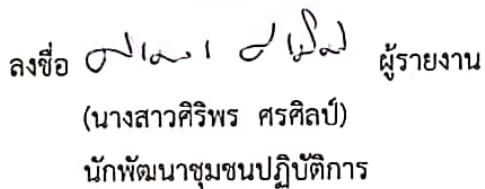 ลงชื่อ ผู้รายงาน
(นางสาวศิริพร ศรศิลป์)
นักพัฒนาชุมชนปฏิบัติการ